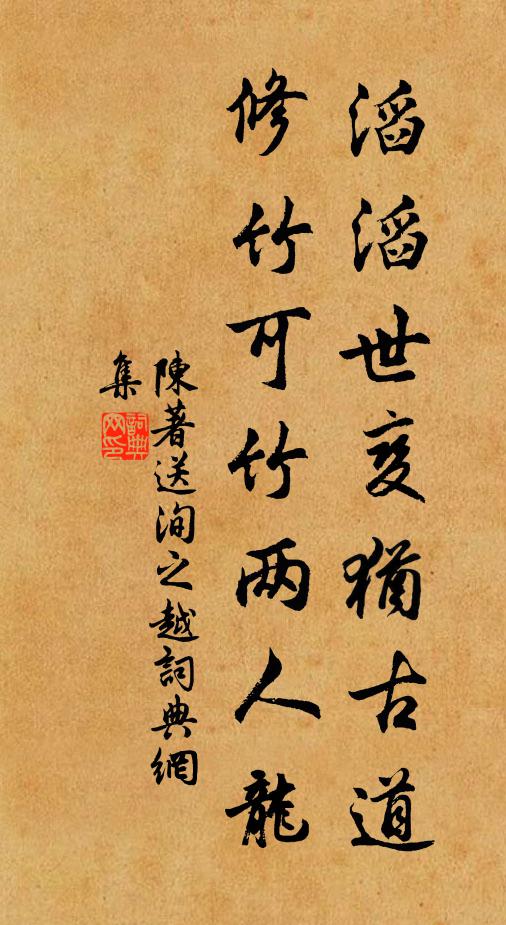 滔滔世变猶古道
修竹可竹两人龍
陳著送洵之越詞典網
集
詞典网印